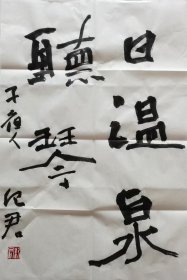 日温泉
聽琴
子夜人 纪君